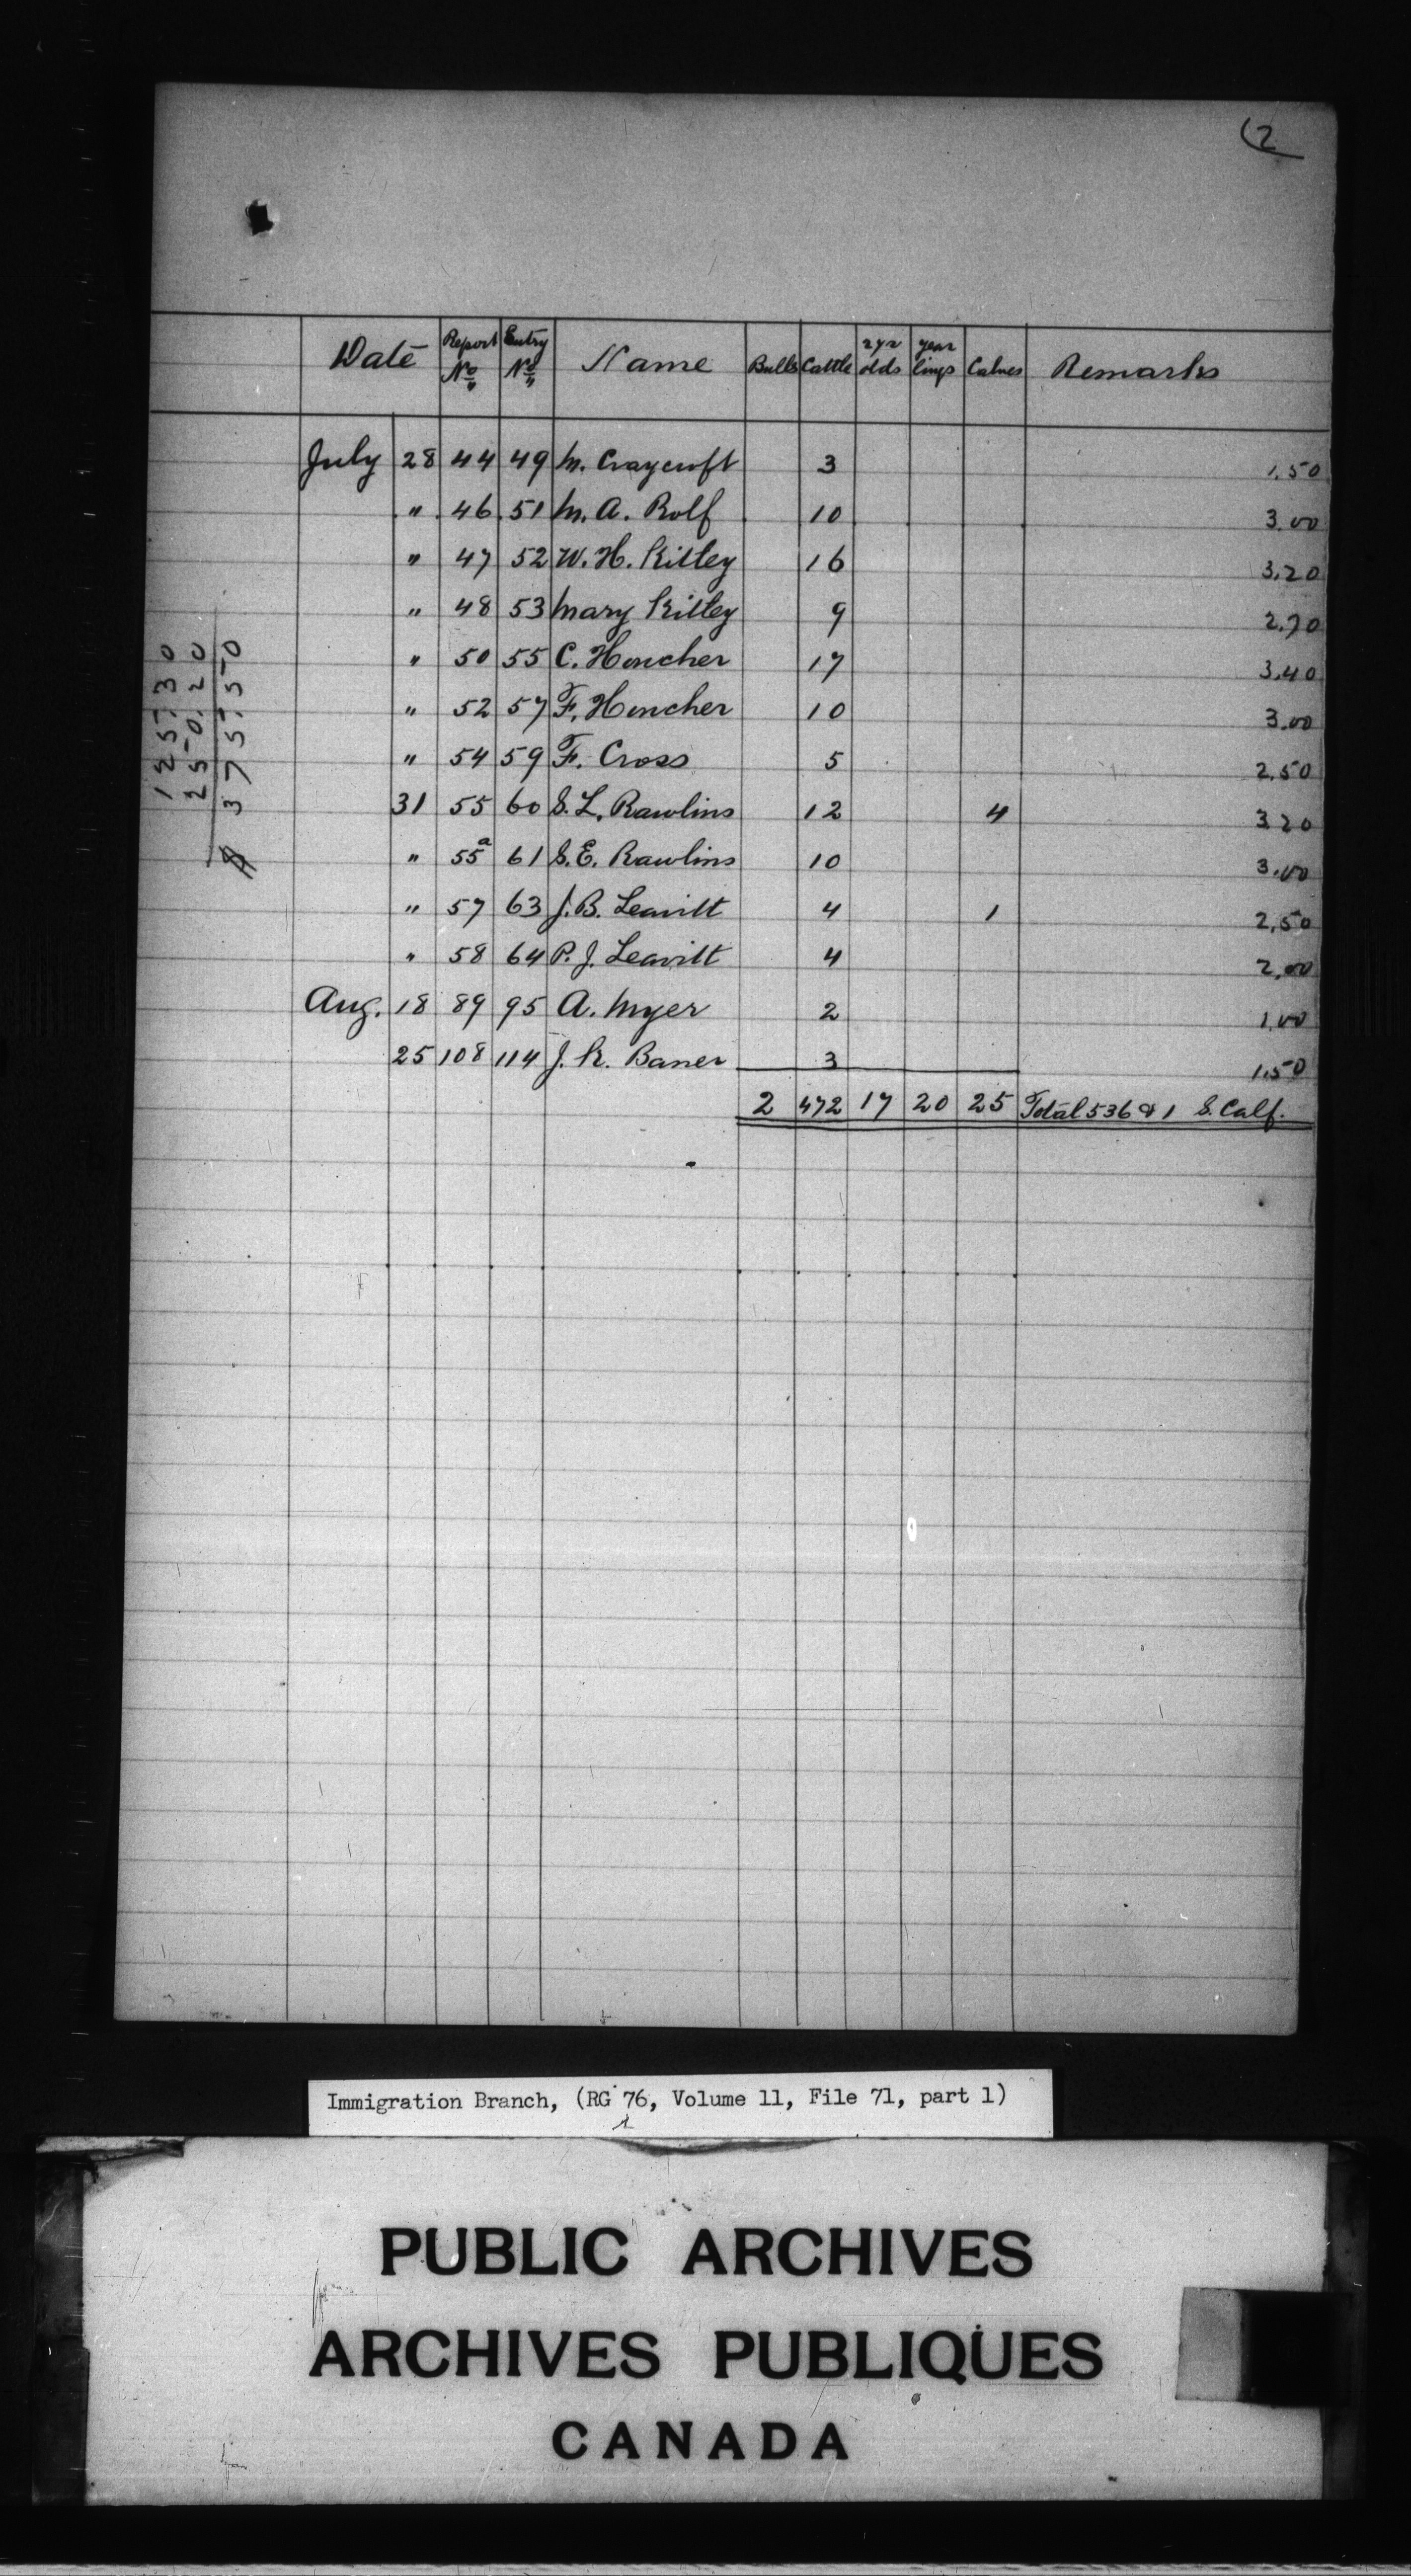 (2
Date Report No. Entry No. Name Bulls Cattle 2 yr olds year lings Calves Remarks
July 28 44 49 M. Craycroft 3 1.50
" 46 51 M. A. Rolf 10 3.00
" 47 52 W. H. Killey 16 3.20
" 48 53 Mary Killey 9 2.70
" 50 55 C. Hencher 17 3.40
" 52 57 F. Hencher 10 3.00
" 54 59 F. Cross 5 2.50
31 55 60 S. L. Rawlins 12 4 3 20
" 55a 61 S. E. Rawlins 10 3.00
" 57 63 J. B. Leavitt 4 1 2,50
" 58 64 P. J. Leavitt 4 2,00
Aug. 18 89 95 A. Myer 2 1,00
25 108 114 J. K. Baner 3 1.50
2 472 17 20 25 Total 536 & 1 S. Calf.
125.30
250.20
375.50
Immigration Branch, (RG 76, Volume 11, File 71, part 1)
PUBLIC ARCHIVES
ARCHIVES PUBLIQUES
CANADA